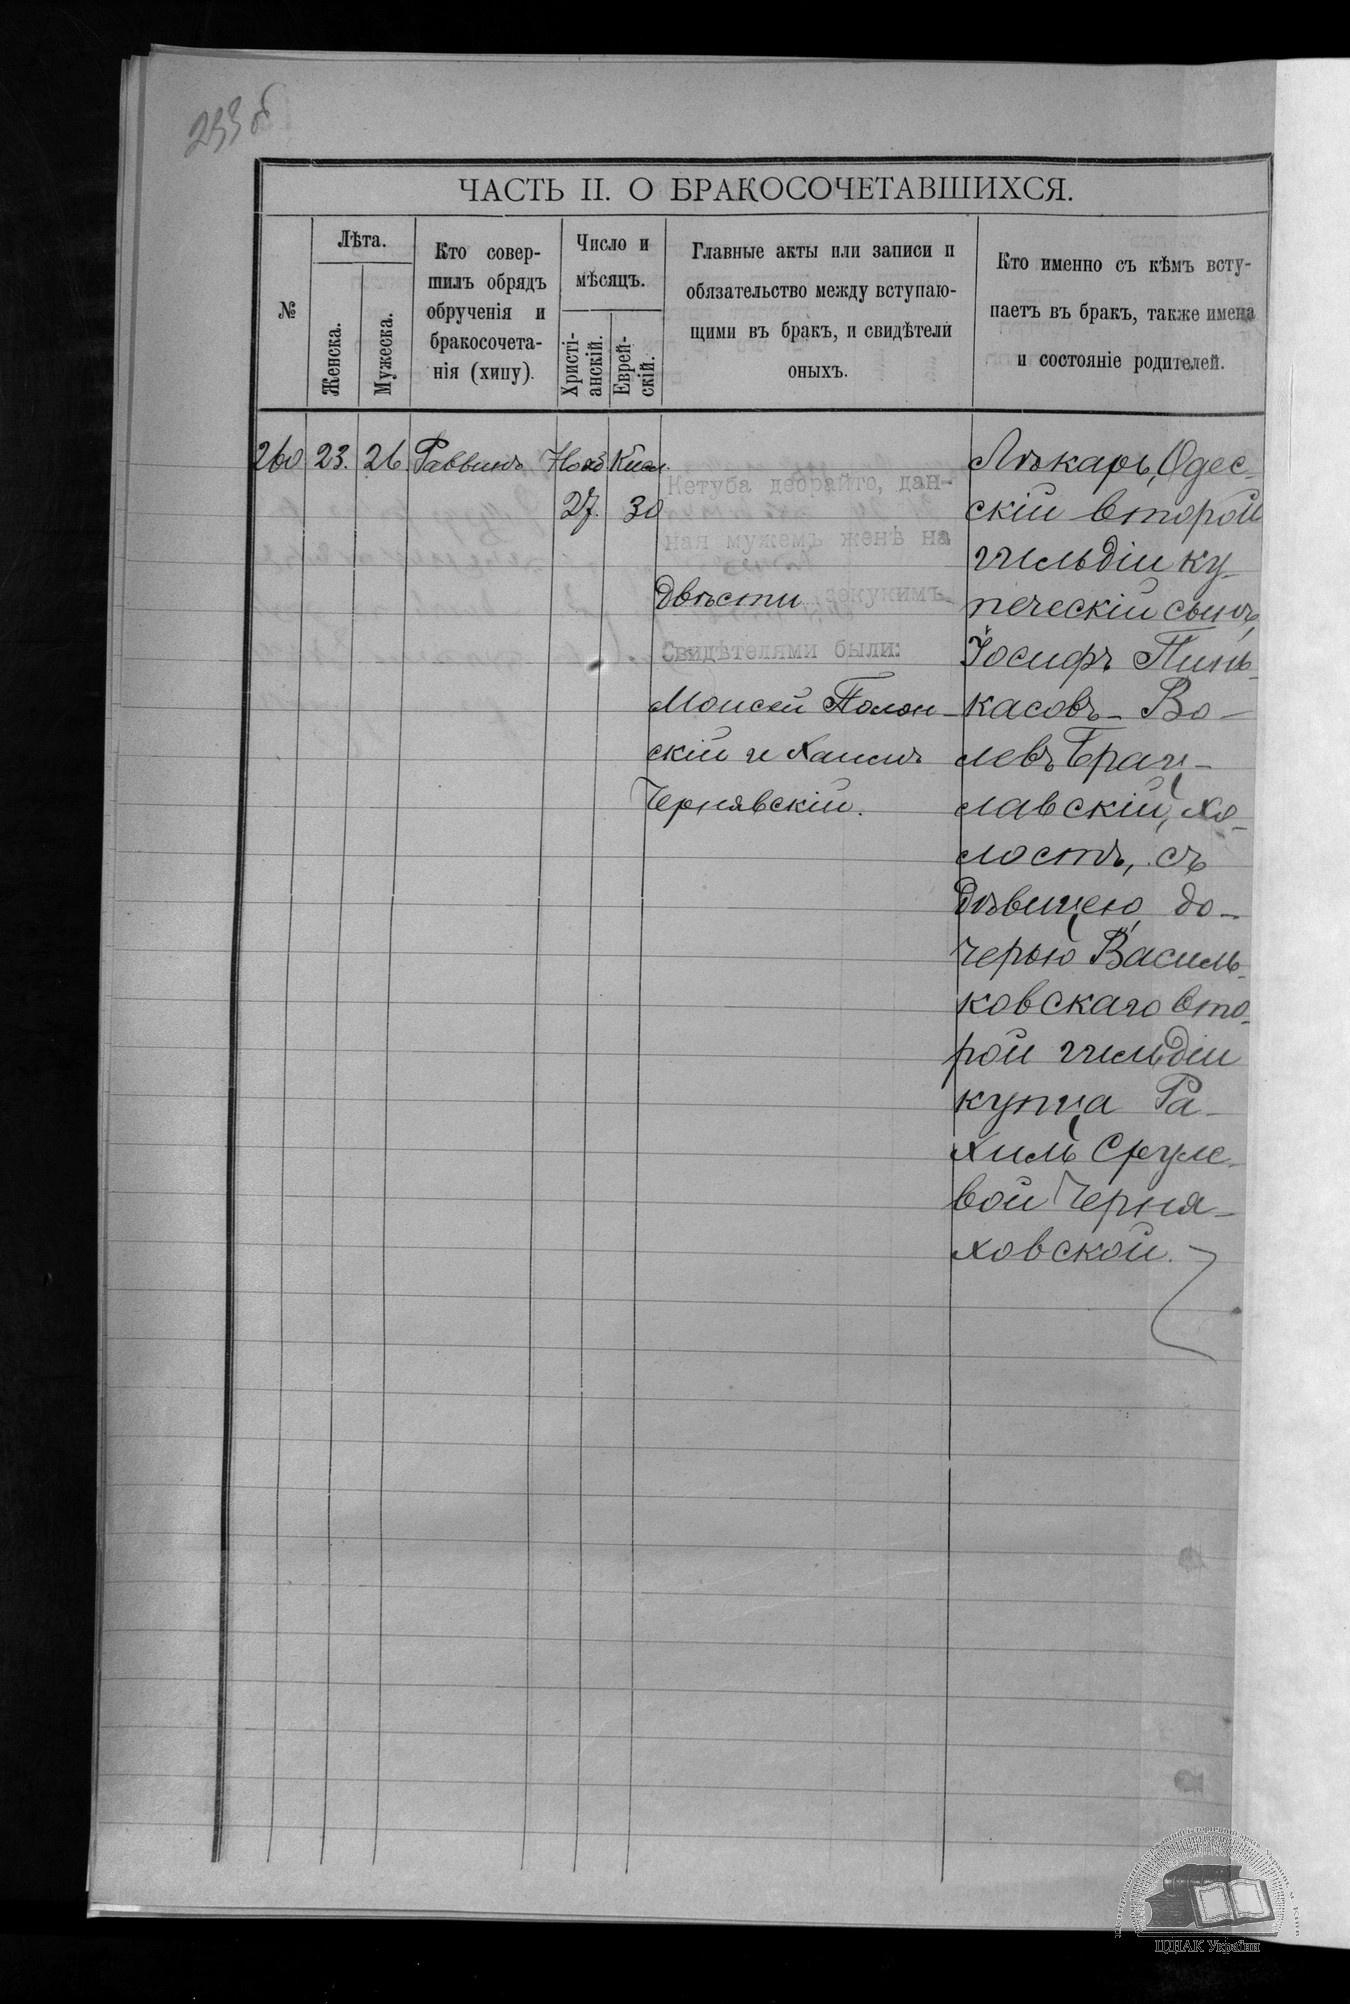 233 б
ЧАСТЬ II. О БРАКОСОЧЕТАВШИХСЯ.
№
Лѣта.
Женска.
Мужеска.
Кто совер-
шилъ обрядъ
обрученія и
бракосочета-
нія (хипу).
Число и
мѣсяцъ.
Христі-
анскій.
Еврей-
скій.
Главные акты или записи и
обязательство между вступаю-
щими въ бракъ, и свидѣтели
оныхъ.
Кто именно съ кѣмъ всту-
паетъ въ бракъ, также имена
и состояніе родителей.
260 23. 26 Раввинъ Нояб Кисл.
27. 30
Кетуба дебрайто, дан-
ная мужемъ женѣ на
Двѣсти зекукимъ
Свидѣтелями были:
Моисей Полон-
скій и Хаимъ
Чернявскій.
Лѣкарь, Одес-
скій второй
гильдіи ку-
печескій сынъ,
Іосифъ Пинь-
касовъ-Во-
левъ Брац-
лавскій, хо-
лостъ, съ
дѣвицею, до-
черью Василь-
ковскаго вто-
рой гильдіи
купца Ра-
хиль Сруле-
вой Черня-
ховской.
ЦДІАК України